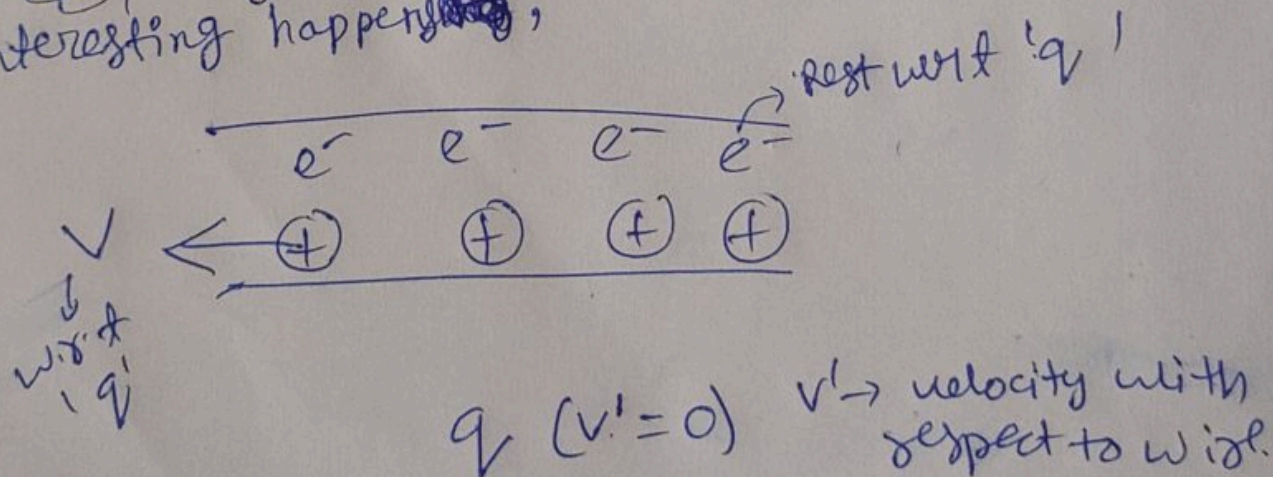 teresting happens,
Rest wrt 'q'
e⁻ e⁻ e⁻ e⁻
V + + + +
w.r.t
'q'
q (v'=0) v'→ velocity with
respect to wire.